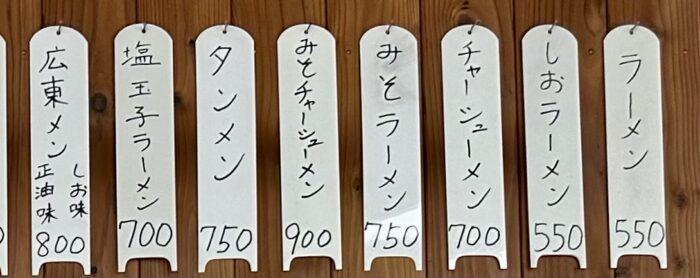 ラーメン
550
しおラーメン
550
チャーシューメン
700
みそラーメン
750
みそチャーシューメン
900
タンメン
750
塩玉子ラーメン
700
広東メン
しお味
正油味
800